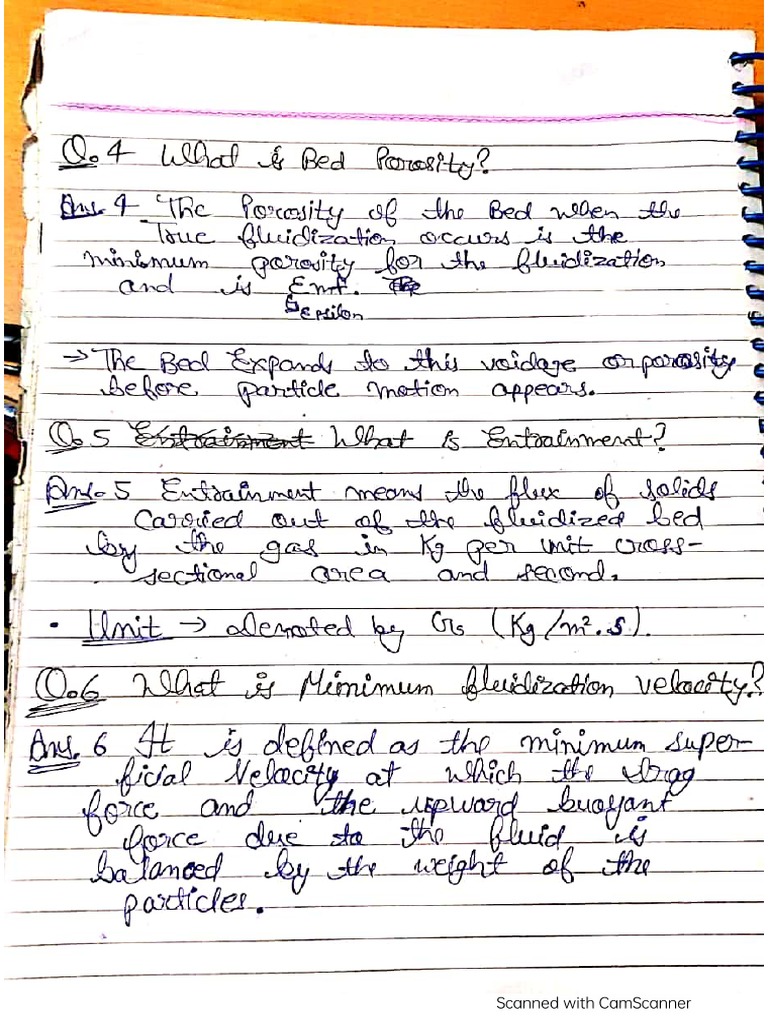 Q.4 What is Bed Porosity?
Ans. 4 The Porosity of the Bed when the
True fluidization occurs is the
minimum porosity for the fluidization
and is Emf.
epsilon
→ The Bed Expands to this voidage or porosity
before particle motion appears.
Q.5 Entrainment What is Entrainment?
Ans-5 Entrainment means the flux of solids
Carried out of the fluidized bed
by the gas in Kg per unit cross-
sectional area and second.
• Unit → denoted by Gs (Kg/m².s).
Q.6 What is Minimum fluidization velocity?
Ans. 6 It is defined as the minimum super-
ficial Velocity at which the drag
force and the upward buoyant
force due to the fluid is
balanced by the weight of the
particles.
Scanned with CamScanner